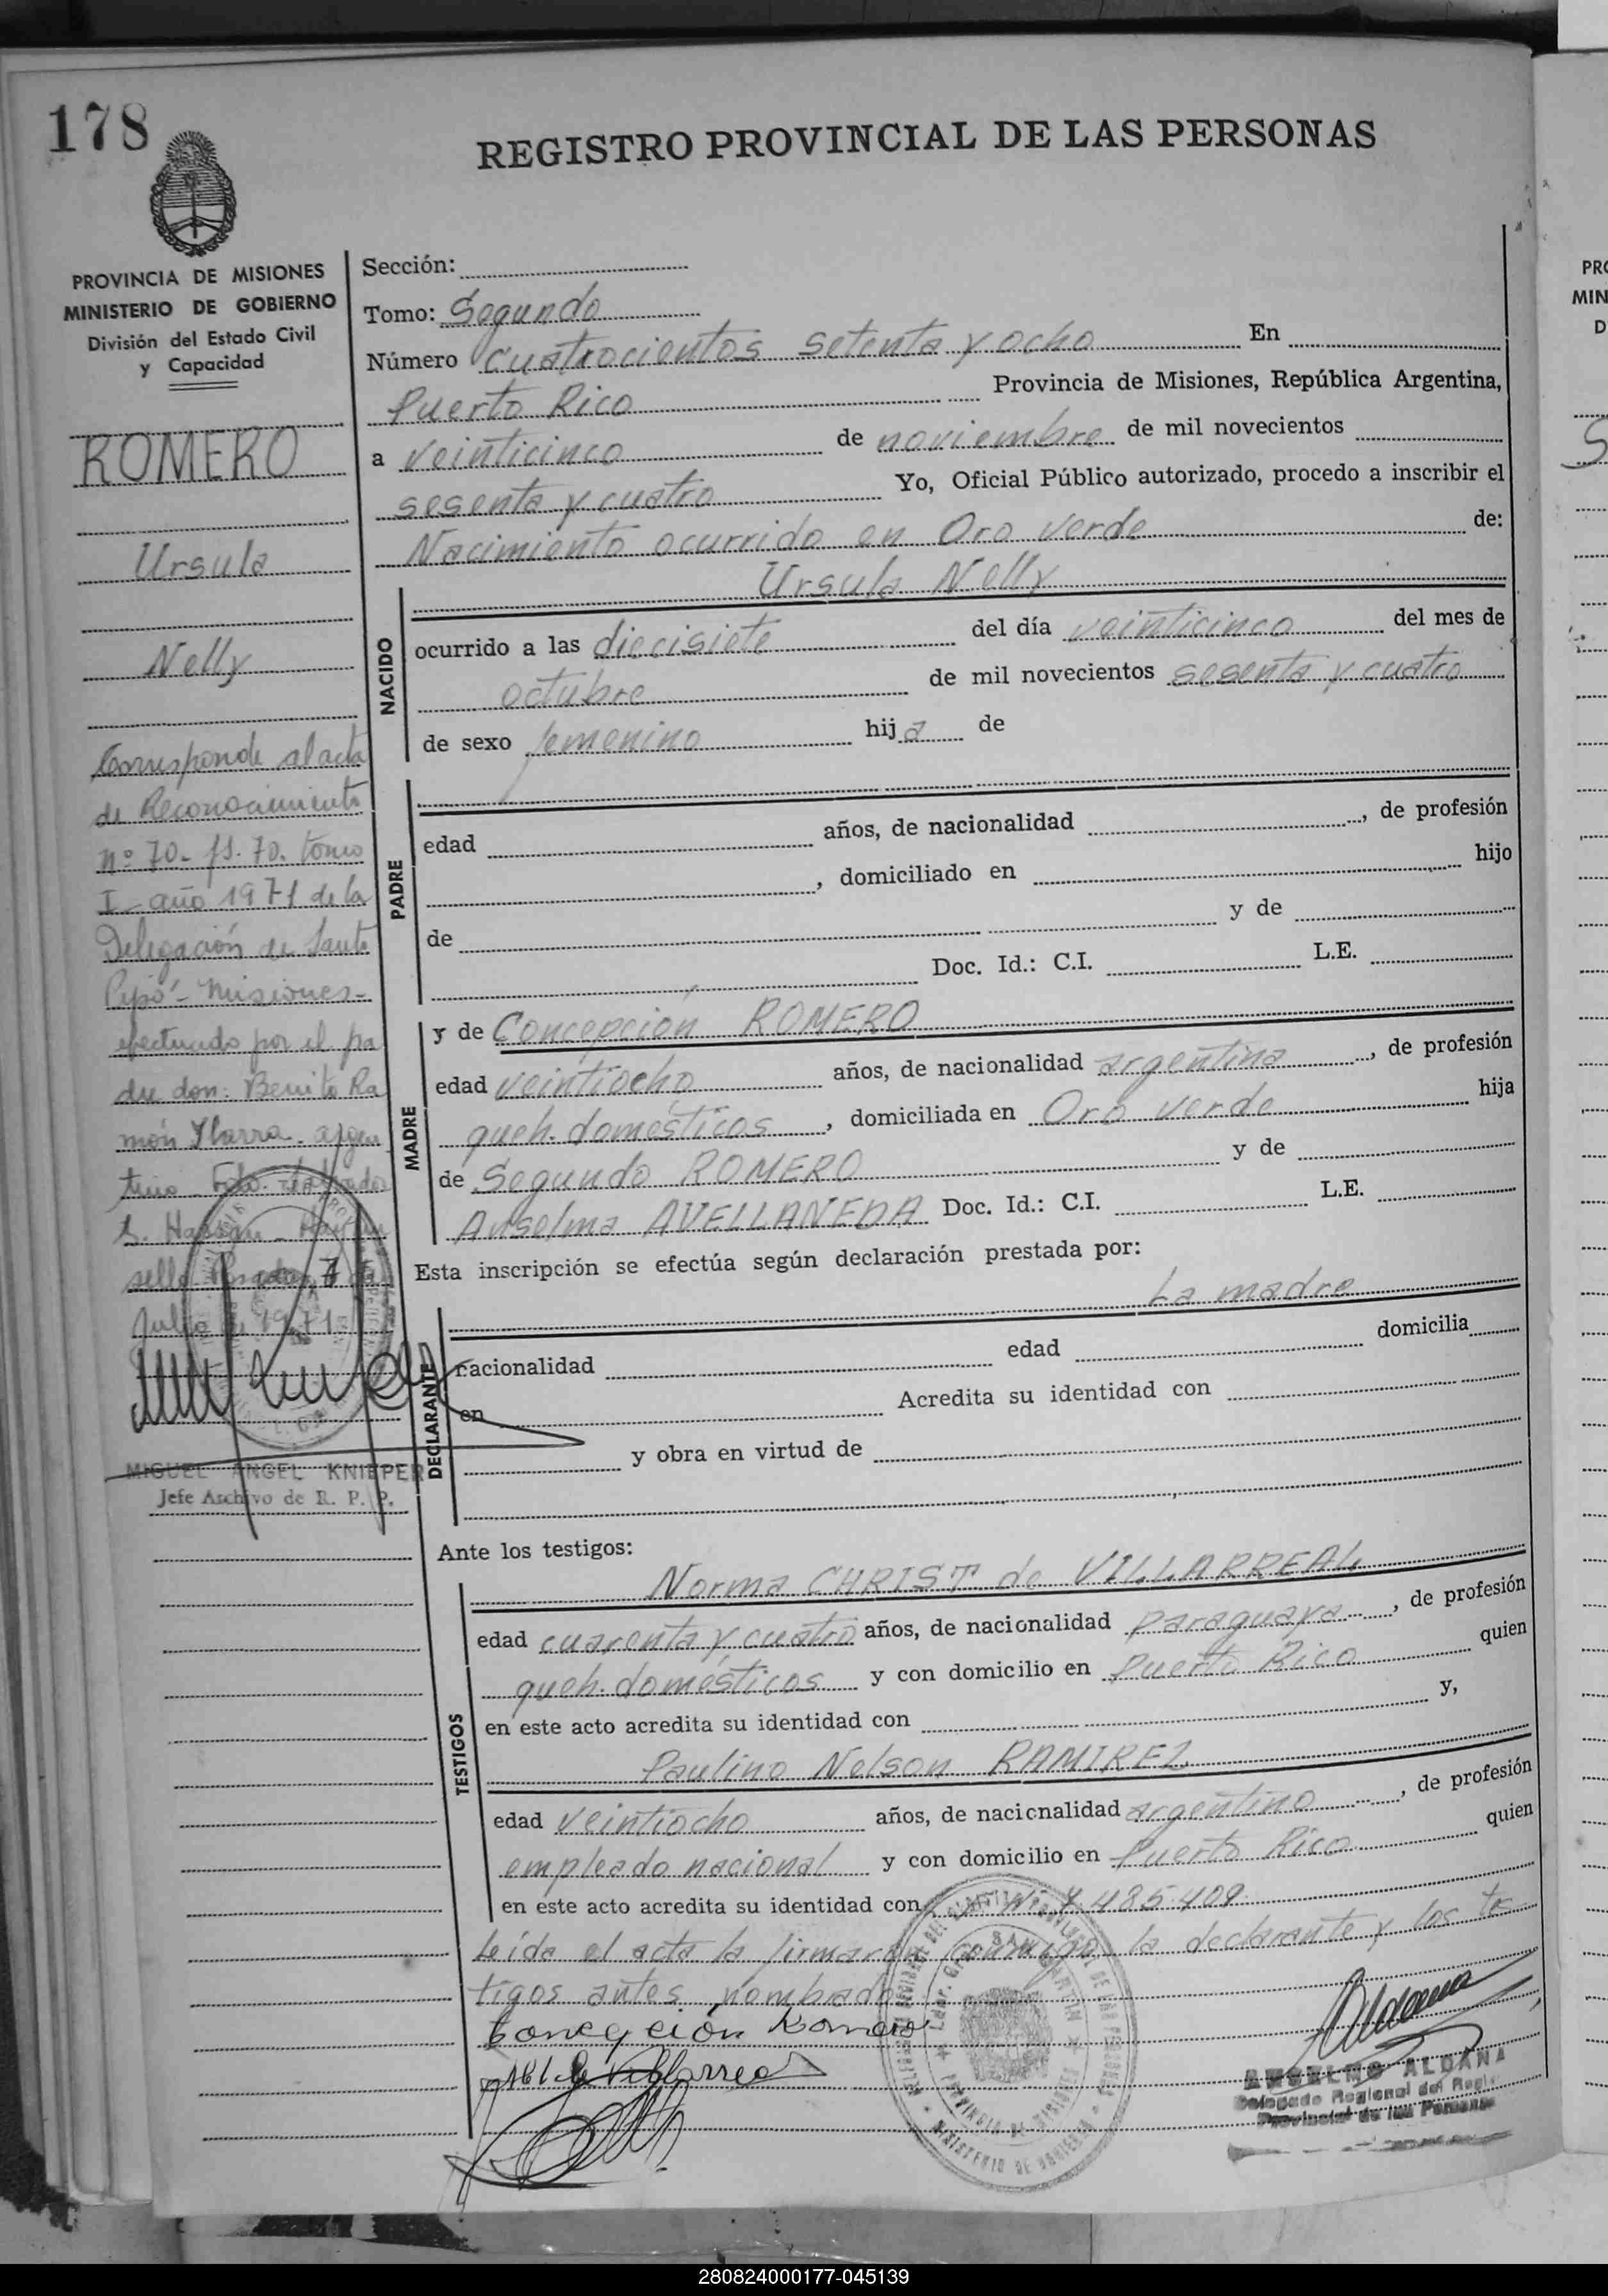 178
REGISTRO PROVINCIAL DE LAS PERSONAS
PROVINCIA DE MISIONES
MINISTERIO DE GOBIERNO
División del Estado Civil
y Capacidad
ROMERO
Ursula
Nelly
Corresponde al acta
de Reconocimiento
nº 70- fs. 70. tomo
I- año 1971 de la
Delegación de Santo
Pipó - Misiones-
efectuado por el pa
dre don: Benito Ra
món Ybarra- argen
tino Fdo.
S. Hassan -
sello Posadas, 7 de
Julio de 1971
MIGUEL ANGEL KNIEPER
Jefe Archivo de R. P. P.
Sección:
Tomo: Segundo
Número Cuatrocientos setenta y ocho En
Puerto Rico Provincia de Misiones, República Argentina,
a veinticinco de noviembre de mil novecientos
sesenta y cuatro Yo, Oficial Público autorizado, procedo a inscribir el
Nacimiento ocurrido en Oro Verde de:
Ursula Nelly
NACIDO
ocurrido a las diecisiete del día veinticinco del mes de
octubre de mil novecientos sesenta y cuatro
de sexo femenino hija de
PADRE
edad años, de nacionalidad , de profesión
, domiciliado en hijo
de y de
Doc. Id.: C.I. L.E.
MADRE
y de Concepción ROMERO
edad veintiocho años, de nacionalidad argentina , de profesión
queh. domésticos , domiciliada en Oro Verde hija
de Segundo ROMERO y de
Anselma AVELLANEDA Doc. Id.: C.I. L.E.
Esta inscripción se efectúa según declaración prestada por:
La madre
DECLARANTE
nacionalidad edad domicilia
en Acredita su identidad con
y obra en virtud de
Ante los testigos:
Norma CHRIST de VILLARREAL
TESTIGOS
edad cuarenta y cuatro años, de nacionalidad paraguaya , de profesión
queh. domésticos y con domicilio en Puerto Rico quien
en este acto acredita su identidad con y,
Paulino Nelson RAMIREZ
edad veintiocho años, de nacionalidad argentino , de profesión
empleado nacional y con domicilio en Puerto Rico quien
en este acto acredita su identidad con 7.485.409
Leída el acta la firmarán conmigo, la declarante y los tes
tigos antes nombrados
Concepción Romero
de Villarreal
ANSELMO ALDANA
Delegado Regional del Regis
Provincial de las Personas
280824000177-045139